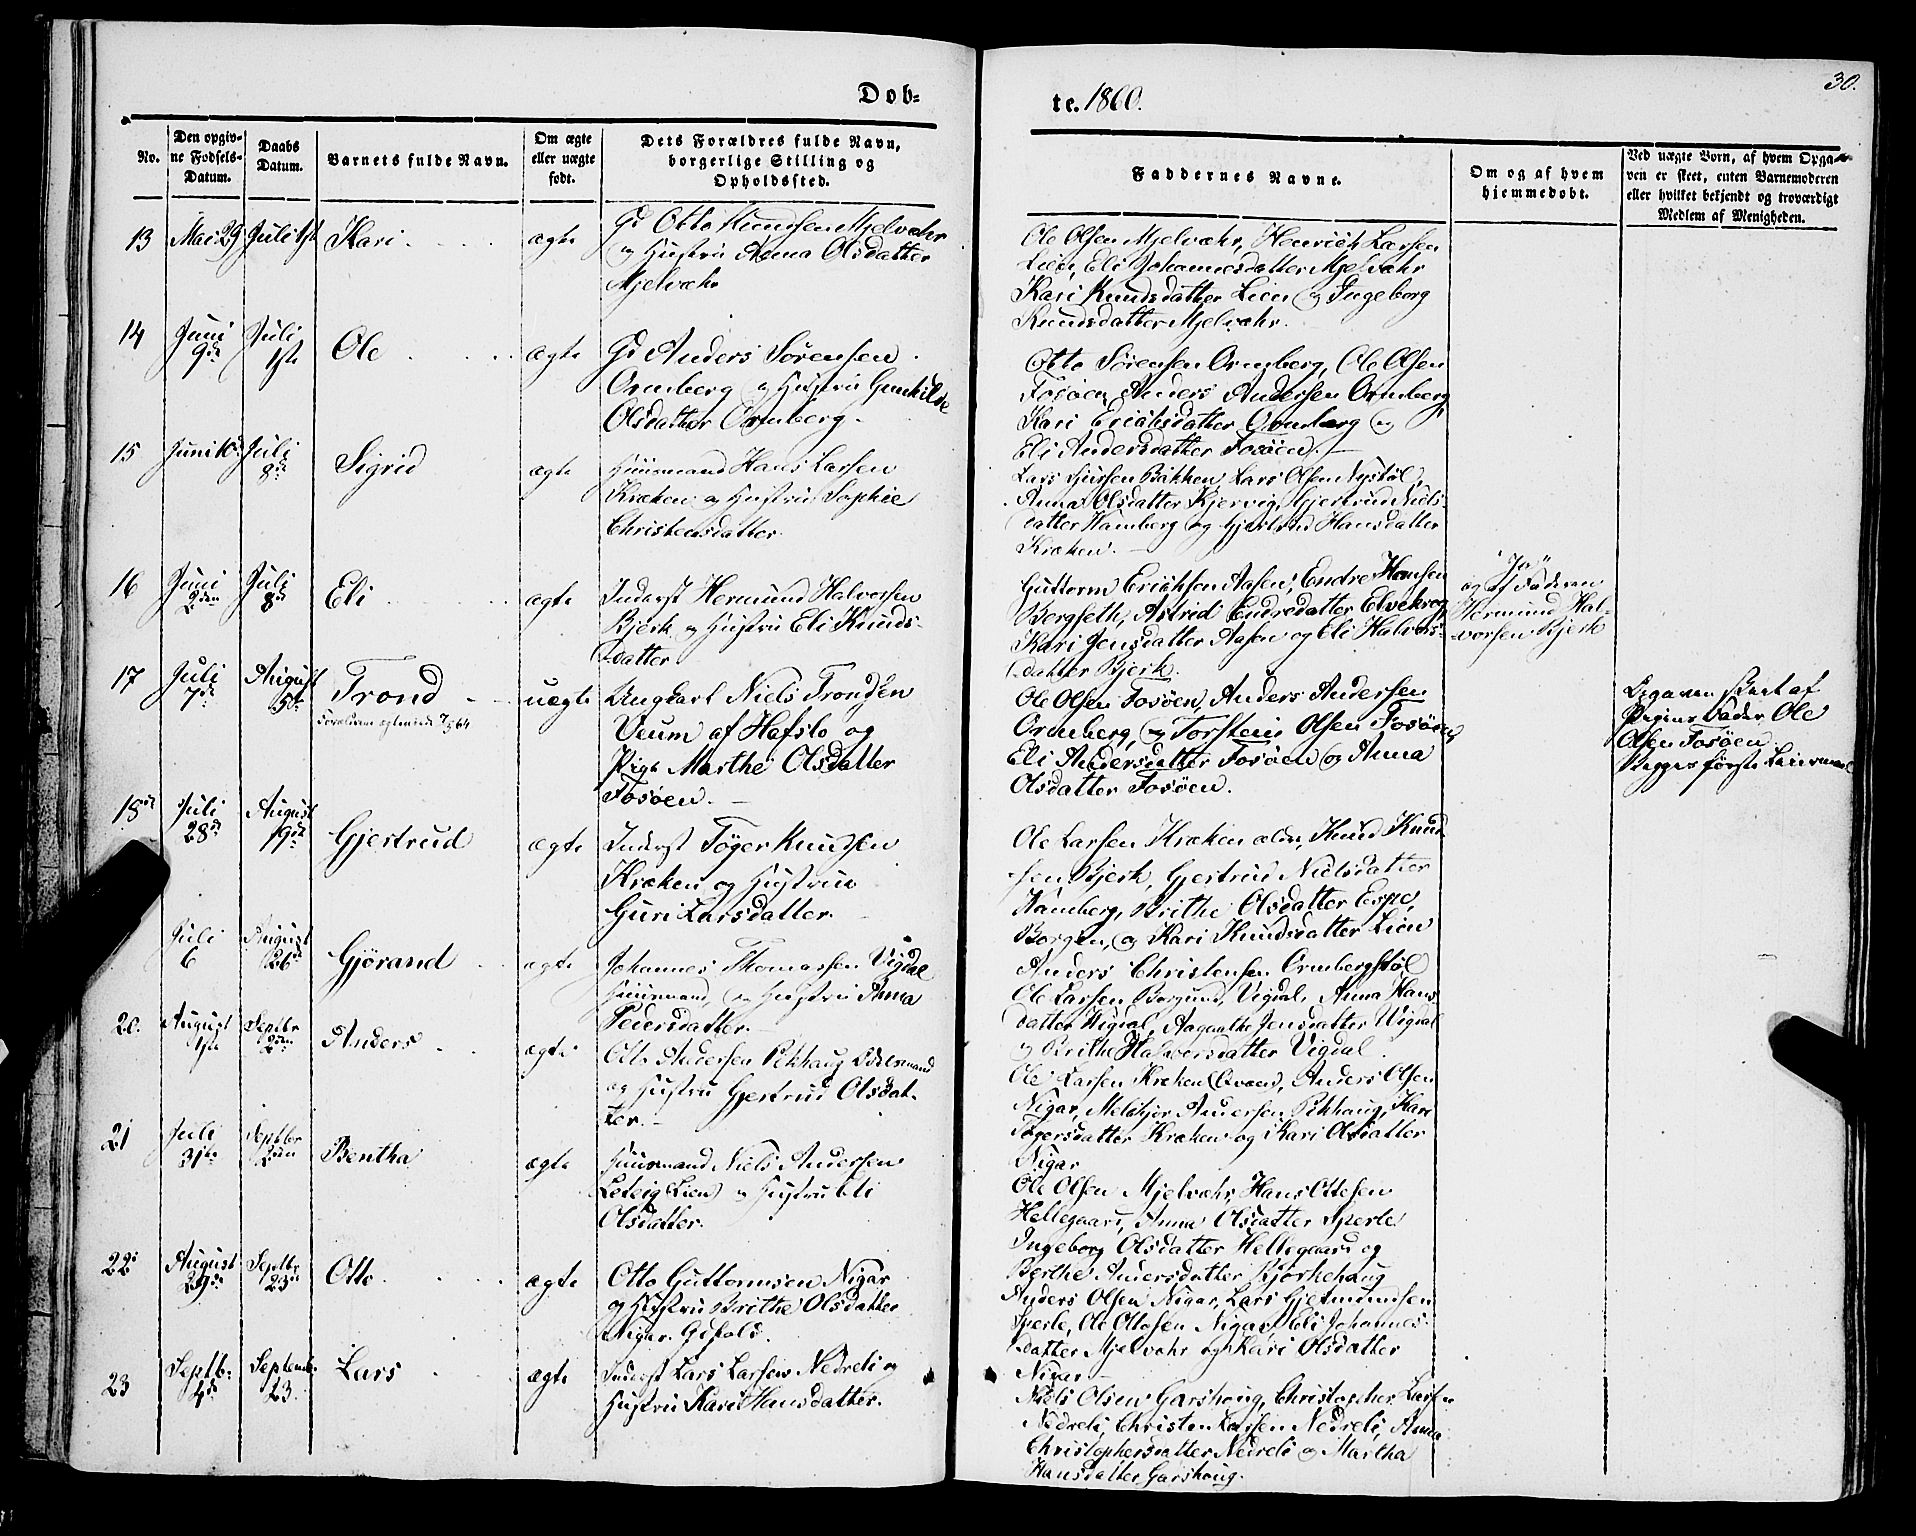 30.
Dob=
te. 1860.
No.
Den opgiv-
ne Fodsels-
Datum.
Daabs
Datum.
Barnets fulde Navn.
Om ægte
eller uægte
fodt.
Dets Forældres fulde Navn,
borgerlige Stilling og
Opholdssted.
Faddernes Navne.
Om og af hvem
hjemmedobt.
Ved uægte Born, af hvem Opga-
ven er skeet, enten Barnemoderen
eller hvilket bekjendt og troværdigt
Medlem af Menigheden.
13 Mai 29 Juli 1st Kari ægte
Gd Otto Knudsen Mjelvæhr
og Hustru Anna Olsdatter
Mjelvæhr
Ole Olsen Mjelvæhr, Henrich Larsen
Lien, Eli Johannesdatter Mjelvæhr
Kari Knudsdatter Lien og Ingeborg
Knudsdatter Mjelvæhr.
14 Juni 9de Juli 1ste Ole ægte
Gd Anders Sørensen
Ormberg og Hustru Gunhilde
Olsdatter Ormberg.
Otto Sørensen Ormberg, Ole Olsen
Fosøen, Anders Andersen Ormberg,
Kari Erichsdatter Ormberg og
Eli Andersdatter Fosøen.
15 Juni 10d Juli 8de Sigrid ægte
Huusmand Hans Larsen
Kræken og Hustru Sophie
Christensdatter.
Lars Bakken, Lars Olsen Nystøl,
Anna Olsdatter Kjervig, Gjertrud Niels-
datter Hamberg og Gjertrud Hansdatter
Kræken.
16 Juni 2den Juli 8de Eli ægte
Inderst Hermund Halvorsen
Bjerk og Hustru Eli Knuds-
datter
Guttorm Erichsen Aasen, Endre Hansen
Bergseth, Astrid Endredatter Elvekrog,
Kari Jensdatter Aasen og Eli Halvors-
datter Bjerk.
"Ja"
og af Faderen
Hermund Hal-
vorsen Bjerk
17 Juli 7de August 5te Trond uægte
Ungkarl Niels Trondsen
Veum af Hafslo og
Pige Marthe Olsdatter
Fosøen.
Ole Olsen Fosøen, Anders Andersen
Ormberg, og Torstein Olsen Fosøen,
Eli Andersdatter Fosøen og Anna
Olsdatter Fosøen.
Opgaven skeet af
Pigens Fader Ole
Olsen Fosøen.
Begges første Leiermaal
18de Juli 28de August 19de Gjertrud ægte
Inderst Tøger Knudsen
Kræken og Hustru
Guri Larsdatter.
Ole Larsen Kræken ældre, Knud Knud-
sen Bjerk, Gjertrud Nielsdatter
Hamberg, Brithe Olsdatter Espe,
Borgen, og Kari Knudsdatter Lien
Juli 6 August 26de Gjørand ægte
Johannes Thomassen Vigdal
Huusmand, og Hustru Anna
Pedersdatter.
Anders Christensen Ormbergstøl
Ole Larsen Borgund, Vigdal, Anna Hans
datter Vigdal, Aagaathe Jensdatter Vigdal
og Brithe Halvorsdatter Vigdal.
20. August 1ste Septbr 2den Anders ægte
Otto Andersen Pikhaug Odelsmand
og Hustru Gjertrud Olsdat-
ter.
Ole Larsen Kræken (Qvæen), Anders Olsen
Nigar, Melchjor Andersen Pikhaug, Kari
Tøgersdatter Kræken og Kari Olsdatter
Nigar
21 Juli 31te Septbr 2den Bentha ægte
Huusmand Niels Andersen
Leteig (Lien) og Hustru Eli
Olsdatter.
Ole Olsen Mjelvæhr, Hans Ottesen
Hellegaard, Anna Olsdatter Sperle
Ingeborg Olsdatter Hellegaard og
Berthe Andersdatter Bjørkehaug
22 August 29de Septbr 23de Otto ægte
Otto Guttormsen Nigar
og Hustru Brithe Olsdatter
Nigar.
Anders Olsen Nigar, Lars Gjermundsen
Sperle, Ole Ottesen Nigar, Eli Johannes-
datter Mjelvæhr og Kari Olsdatter
Nigar
23 Septb. 4de Septemb. 23. Lars ægte
Inderst Lars Larsen Nedreli og
Hustru Kari Hansdatter.
Niels Olsen Garshoug, Christopher Larsen
Nedreli, Christen Larsen Nedreli, Anna
Christophersdatter Nedreli og Martha
Hansdatter Garshoug.